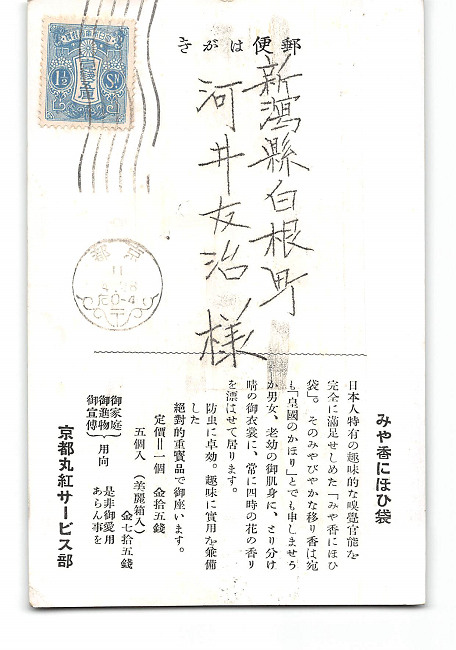 郵便はがき
新潟縣白根町
河井友治様
1½ Sn
京都
11
0-4
みや香にほひ袋
日本人特有の趣味的な嗅覺官能を
完全に滿足せしめた「みや香にほひ
袋」。そのみやびやかな移り香は宛
も「皇國のかほり」とでも申しませう
か男女、老幼の御肌身に、とり分け
晴の御衣裳に、常に四時の花の香り
を漂はせて居ります。
防虫に卓効。趣味に實用を兼備
した
絕對的重寳品で御座います。
定價=一個 金拾五錢
五個入(美麗箱入)
金七拾五錢
御家庭
御進物
御宣傳
用向
是非御愛用
あらん事を
京都丸紅サービス部